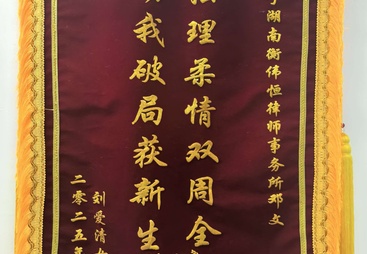 湖南衡伟恒律师事务所邓文
法理柔情双周全
助我破局获新生
刘爱清女
二零二五年